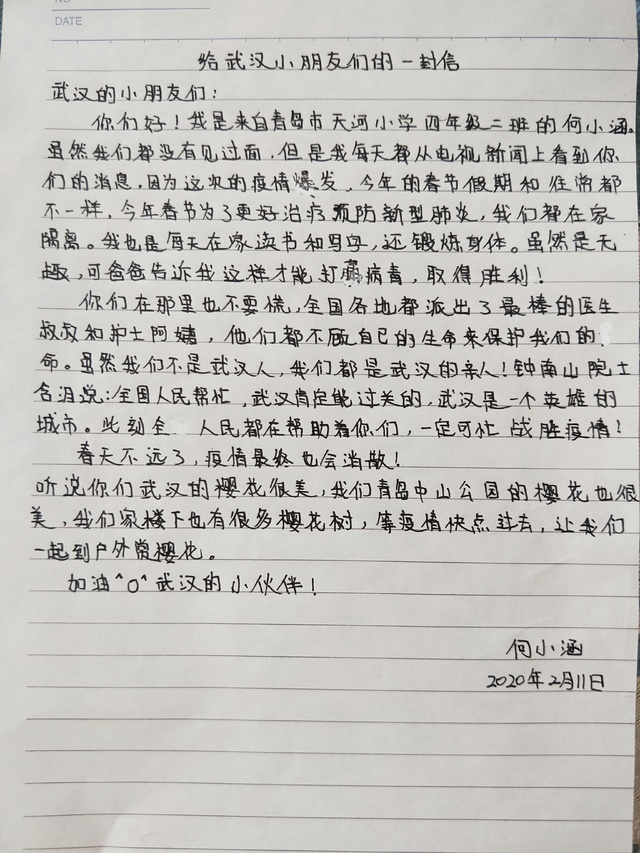 DATE
给武汉小朋友们的一封信
武汉的小朋友们：
你们好！我是来自青岛市天河小学四年级二班的何小涵。
虽然我们都没有见过面，但是我每天都从电视新闻上看到你
们的消息，因为这次的疫情爆发，今年的春节假期和往常都
不一样，今年春节为了更好治疗预防新型肺炎，我们都在家
隔离。我也是每天在家读书和写字，还锻炼身体。虽然是无
趣，可爸爸告诉我这样才能打赢病毒，取得胜利！
你们在那里也不要慌，全国各地都派出了最棒的医生
叔叔和护士阿姨，他们都不顾自己的生命来保护我们的
命。虽然我们不是武汉人，我们都是武汉的亲人！钟南山院士
含泪说：全国人民帮忙，武汉肯定能过关的，武汉是一个英雄的
城市。此刻全 人民都在帮助着你们，一定可忙战胜疫情！
春天不远了，疫情最终也会消散！
听说你们武汉的樱花很美，我们青岛中山公园的樱花也很
美，我们家楼下也有很多樱花树，等疫情快点过去，让我们
一起到户外赏樱花。
加油^0^武汉的小伙伴！
何小涵
2020年2月11日